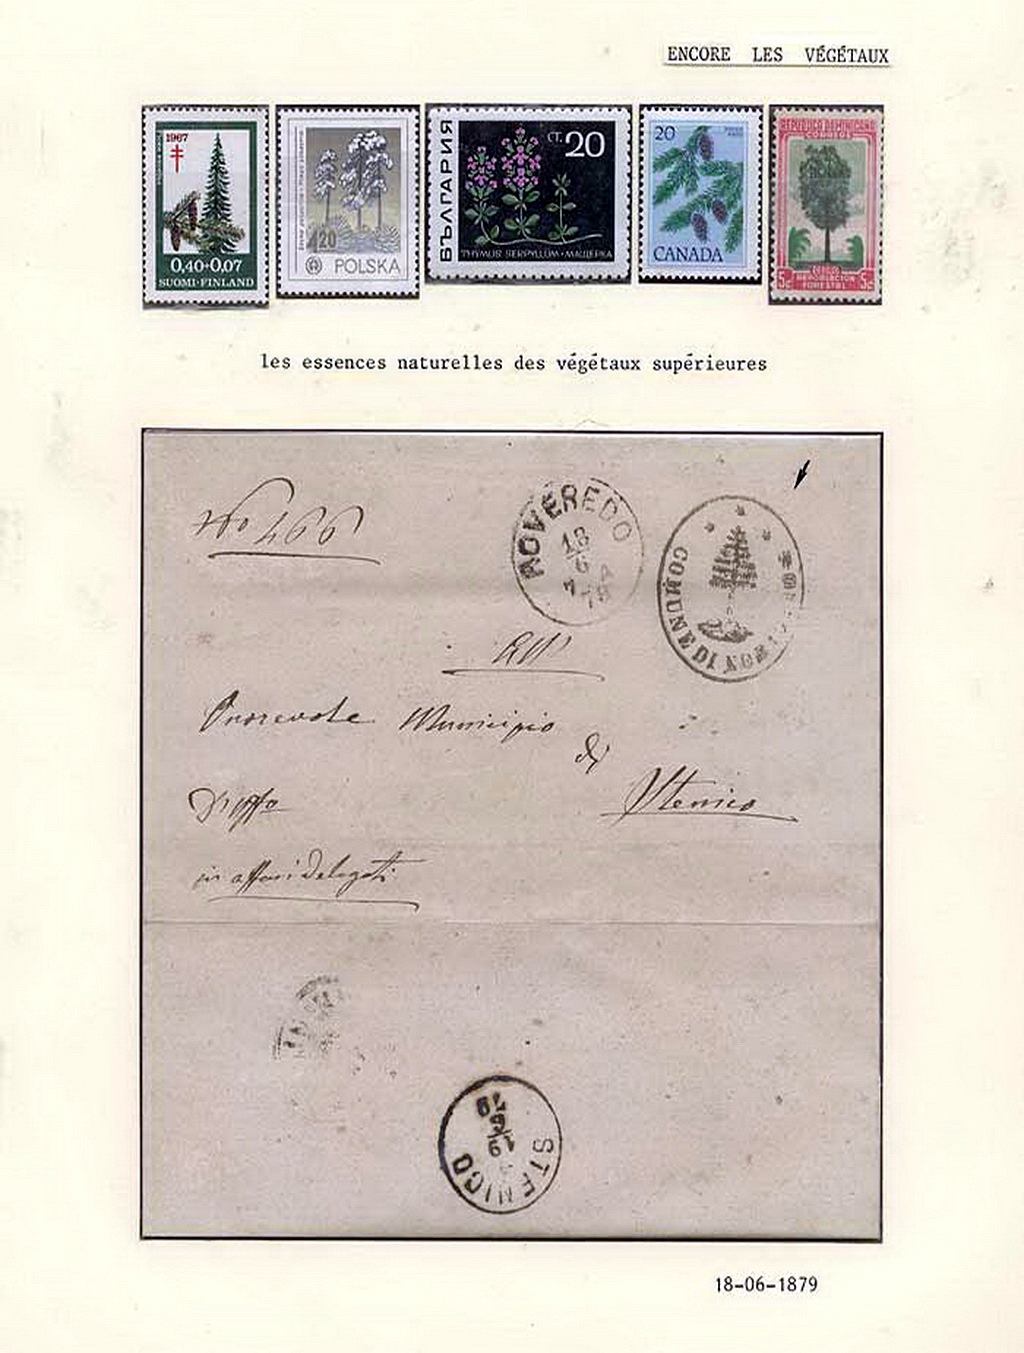 ENCORE LES VÉGÉTAUX
1967
0,40+0,07
SUOMI-FINLAND
4.20
POLSKA
БЪЛГАРИЯ
СТ. 20
THYMUS SERPYLLUM - МАЩЕРКА
20
CANADA
REPUBLICA DOMINICANA
CORREOS
REPOBLACION
5c FORESTAL 5c
les essences naturelles des végétaux supérieures
ROVEREDO
18
6
COMUNE DI
All'
Onorevole Municipio
di
Stenico
in affari delegati
STENICO
19
6
79
18-06-1879